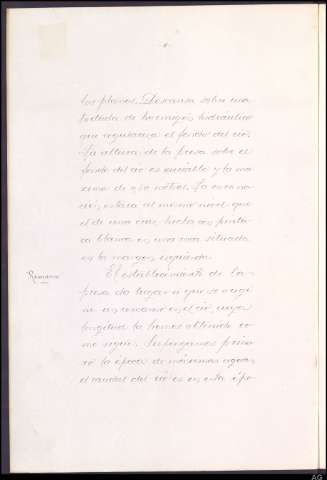 los planos. Descansa sobre una
solada de hormigón hidráulico
que regulariza el fondo del río.
La altura de la presa sobre el
fondo del río es variable y la má
xima de metros. La corona
ción, estará al mismo nivel que
el de una cruz, hecha con pintu
ra blanca en una roca situada
en la margen izquierda.
Remanso
El establecimiento de la
presa da lugar a que se origi
ne un remanso en el río, cuya
longitud la hemos obtenido co
mo sigue. Supongamos prime
ro la época de máximas aguas,
el caudal del río es en esta épo
AG